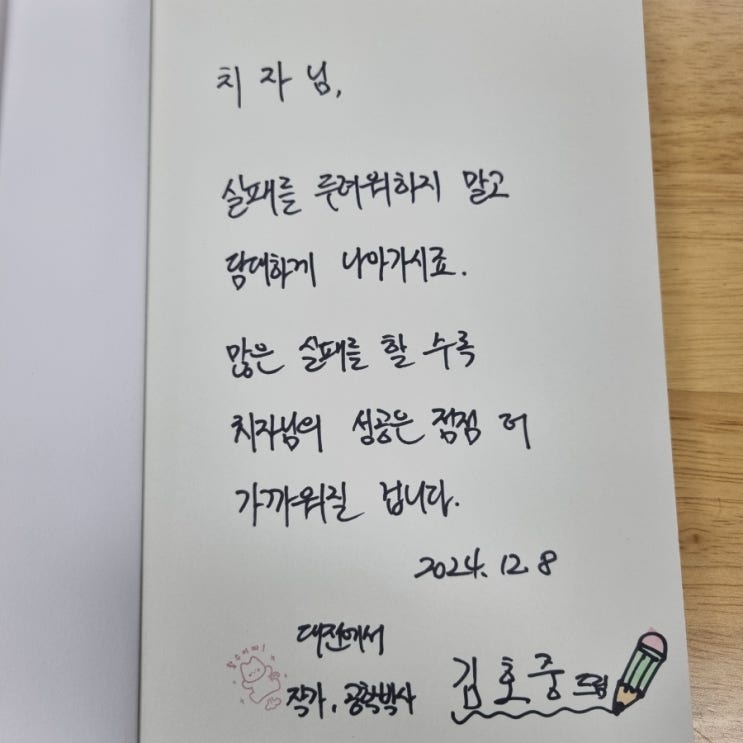 치자님,
실패를 두려워하지 말고
담대하게 나아가시죠.
많은 실패를 할 수록
치자님의 성공은 점점 더
가까워질 겁니다.
2024. 12. 8
대전에서
작가, 공학박사 김호중 드림